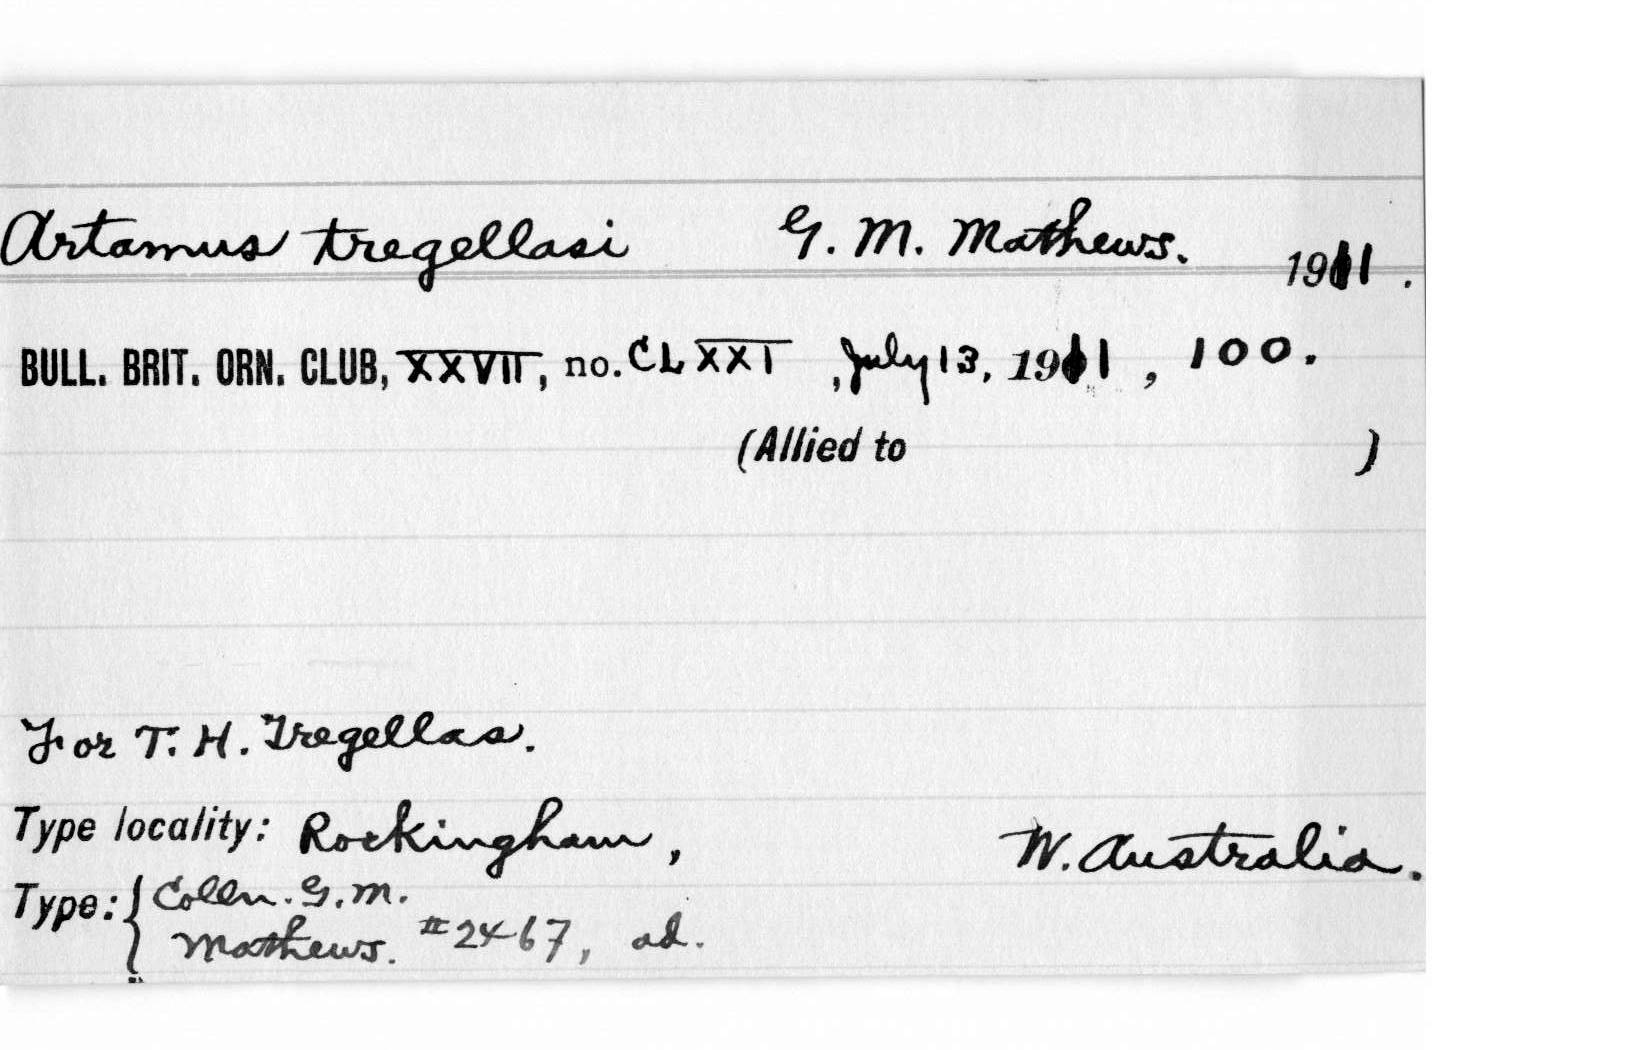 Artamus tregellasi G. M. Mathews. 1911.
BULL. BRIT. ORN. CLUB, XXVII, no. CLXXI, July 13, 1911, 100.
(Allied to )
For T. H. Tregellas.
Type locality: Rockingham, W. Australia.
Type: { Colln. G. M.
Mathews. #2467, ad.